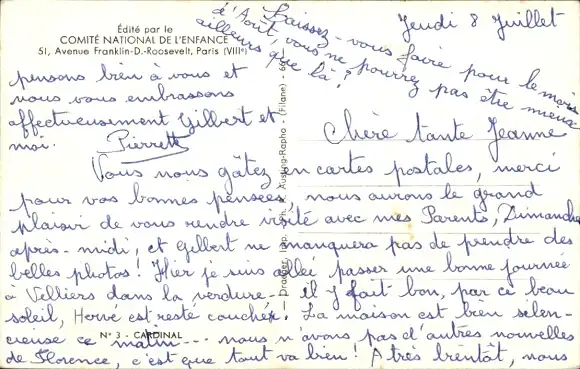 Édité par le
COMITÉ NATIONAL DE L'ENFANCE
51, Avenue Franklin-D.-Roosevelt, Paris (VIIIe)
Jeudi 8 Juillet
Chère tante Jeanne
Vous nous gâtez en cartes postales, merci
pour vos bonnes pensées, nous aurons le grand
plaisir de vous rendre visite avec mes Parents, Dimanche
après-midi, et Gilbert ne manquera pas de prendre des
belles photos! Hier je suis allée passer une bonne journée
à Velliers dans la verdure - il y fait bon, par ce beau
soleil, Hervé est resté couché! La maison est bien silen-
cieuse ce matin... nous n'avons pas d'autres nouvelles
de Florence, c'est que tout va bien! A très bientôt, nous
pensons bien à vous et
nous vous embrassons
affectueusement Gilbert et
moi. Pierrette
Laissez-vous faire pour le mois
d'Août, vous ne pourrez pas être mieux
ailleurs que là?
N° 3 - CARDINAL
Draeger, imp. - Ph. (Filane) -